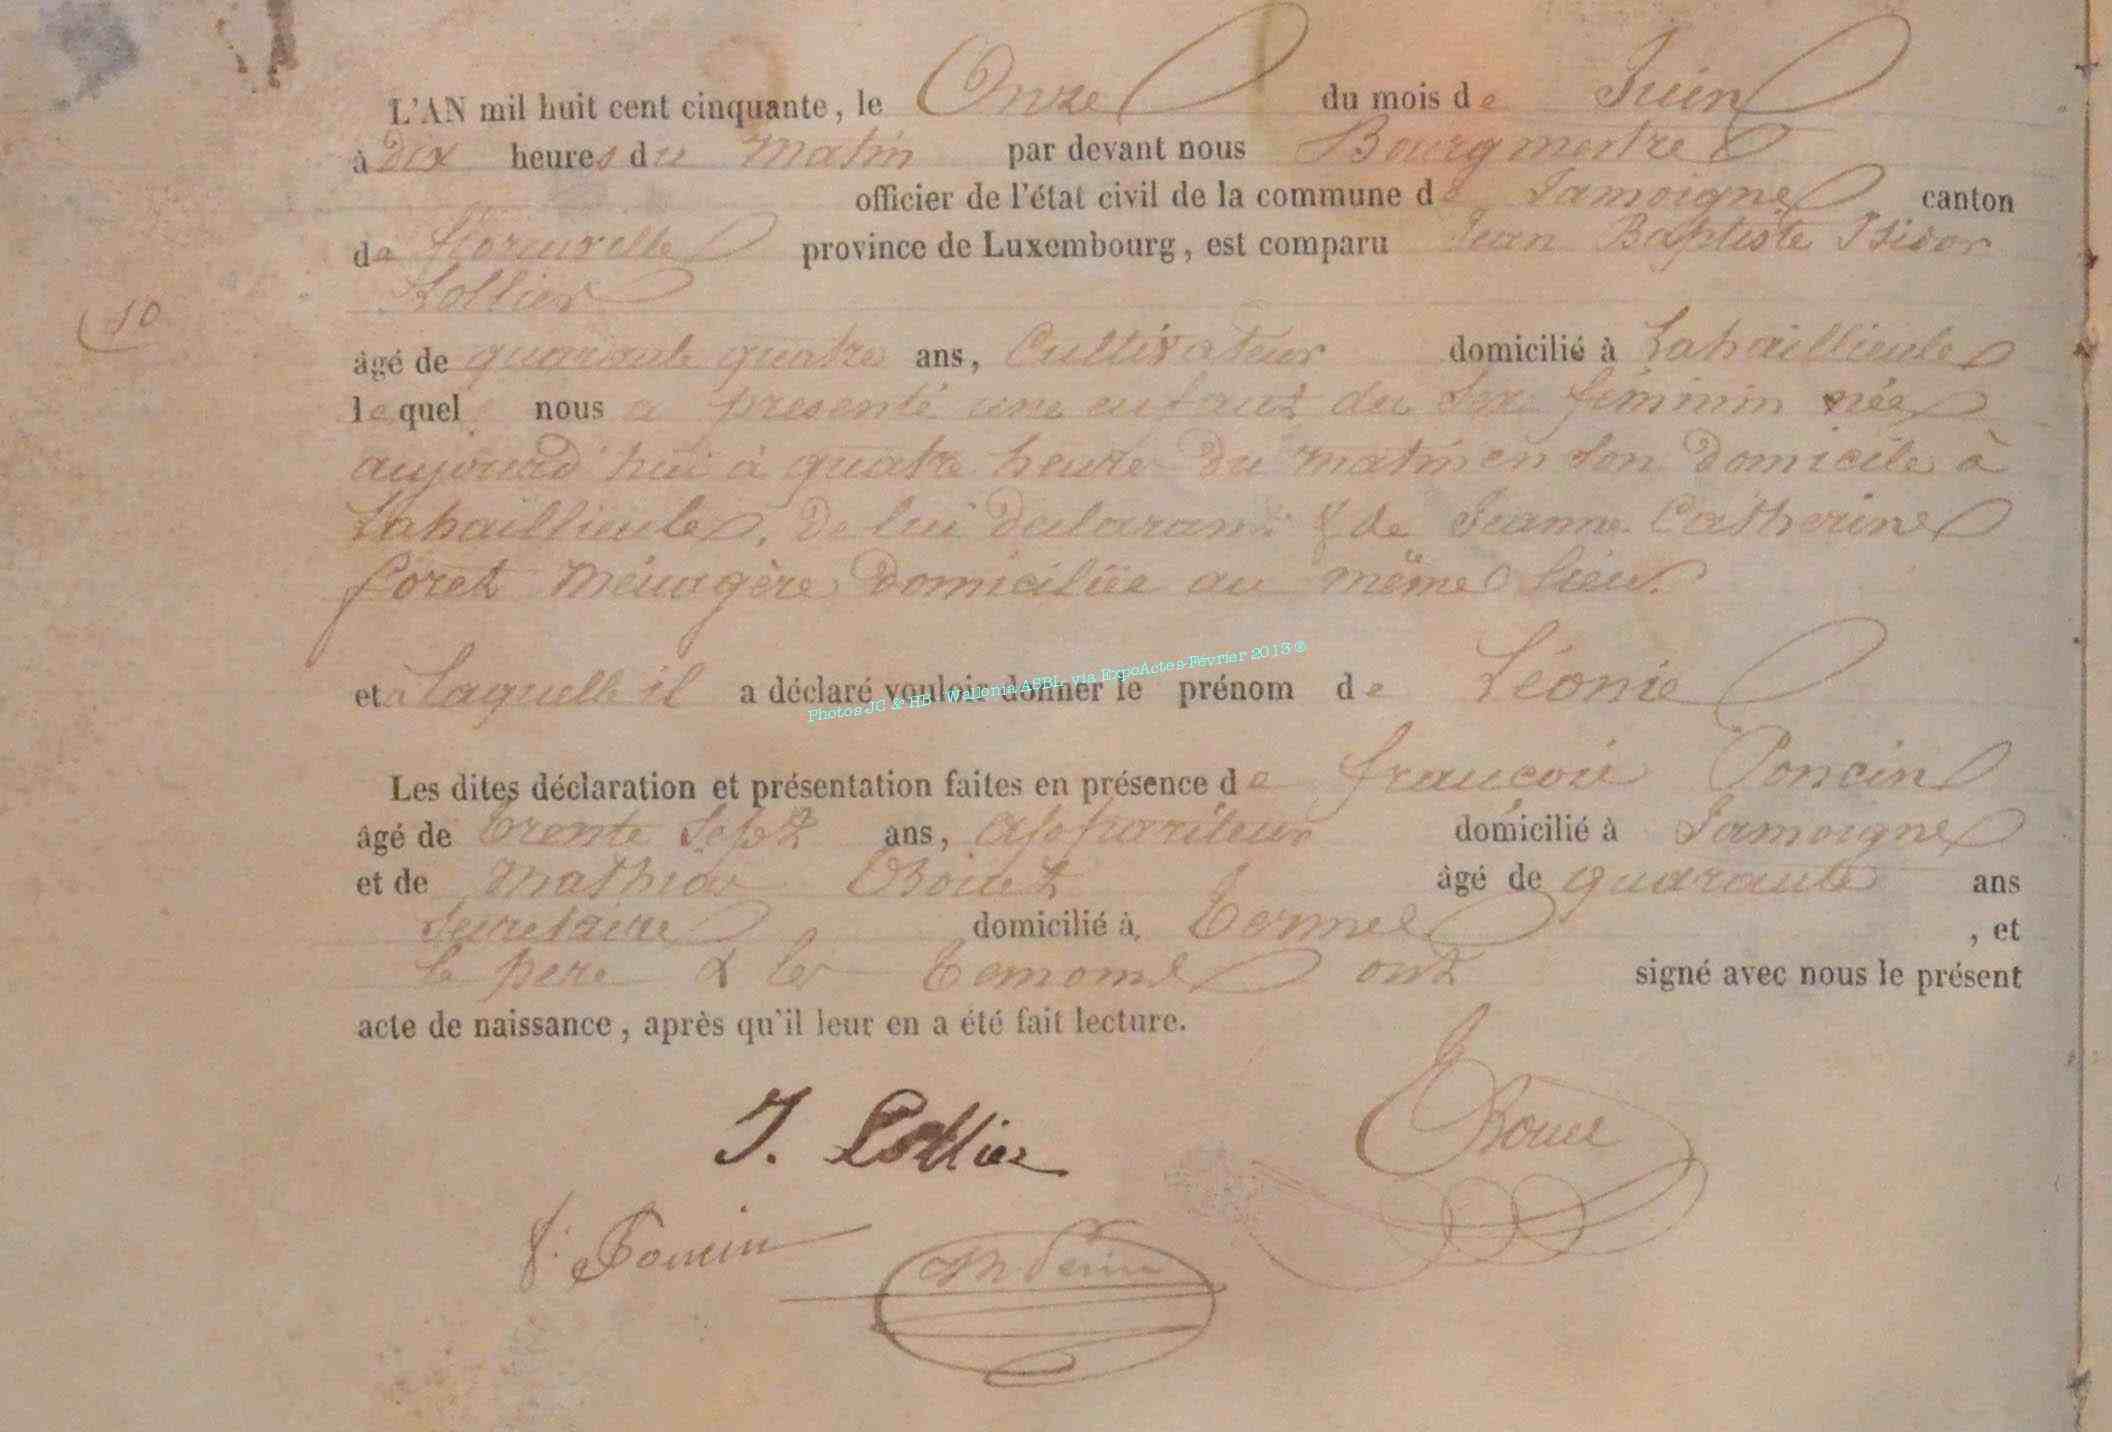 L'AN mil huit cent cinquante, le Onze du mois de Juin
à Dix heures du Matin par devant nous Bourgmestre
officier de l'état civil de la commune de Jamoigne canton
de florenville province de Luxembourg, est comparu Jean Baptiste Isidor
Lollier
10
âgé de quarante quatre ans, Cultivateur domicilié à Lahaillieule
lequel nous a presenté une enfant du sex féminin née
aujourd'hui à quatre heure du matin en son Domicile à
Lahaillieule, De lui Declarant & de Jeanne Catherine
foret Ménagère Domiciliée au même lieu.
et a Laquelle il a déclaré vouloir donner le prénom de Léonie
Photos JC & HB - Wallonia ASBL via ExpoActes-Février 2013 ®
Les dites déclaration et présentation faites en présence de francois Poncin
âgé de trente Sept ans, appariteur domicilié à Jamoigne
et de Mathias âgé de quarante ans
Secretaire domicilié à Termes, et
le pere & les temoins ont signé avec nous le présent
acte de naissance, après qu'il leur en a été fait lecture.
J. Lollier
f. Poncin